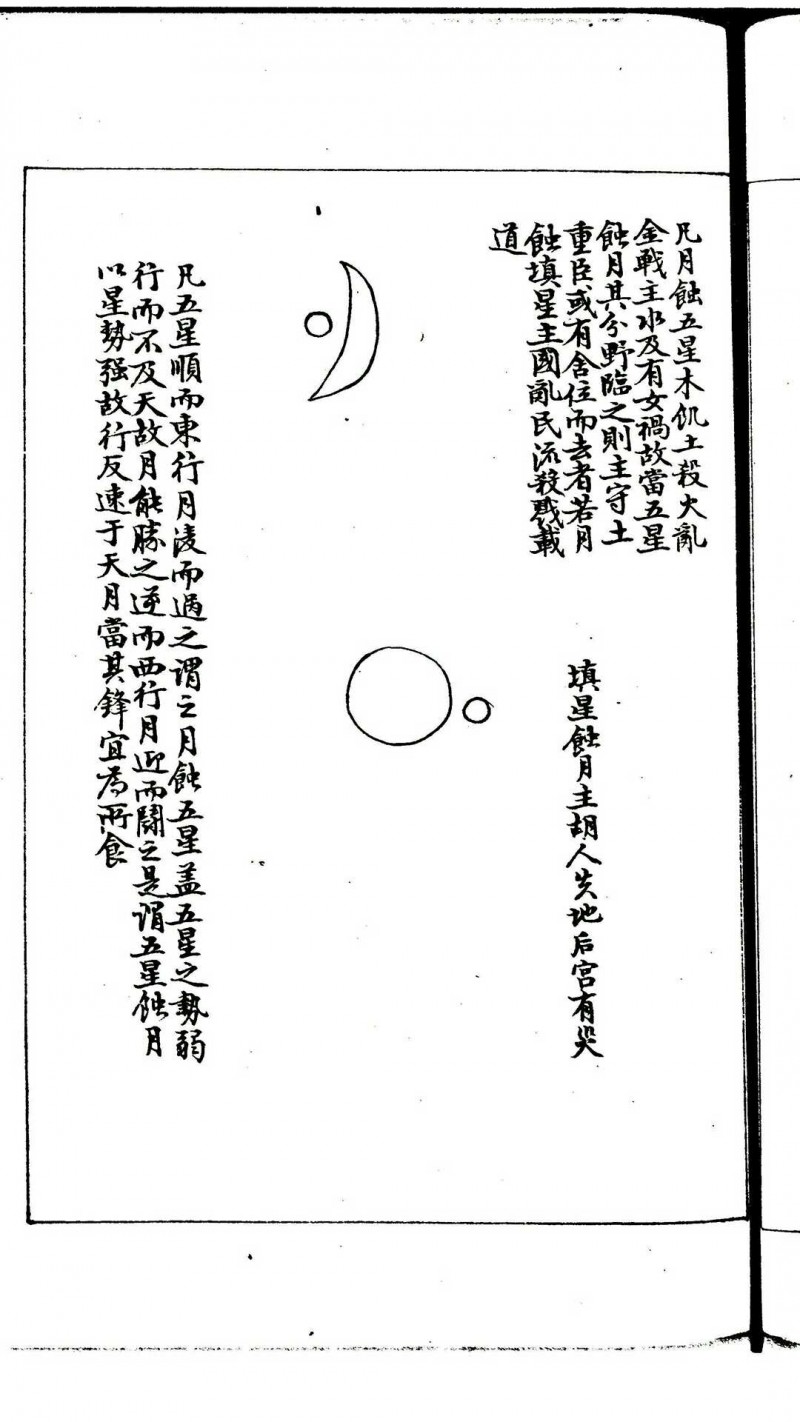 凡月蝕五星木饥土殺火亂
金戰主水及有女禍故當五星
蝕月其分野臨之則主守土
重臣或有舍位而去者若月
蝕填星主國亂民流殺戮載
道
填星蝕月主胡人失地后宮有哭
凡五星順而東行月凌而過之謂之月蝕五星盖五星之勢弱
行而不及天故月能勝之逆而西行月迎而鬪之是謂五星蝕月
以星勢强故行反速于天月當其鋒宜為所食